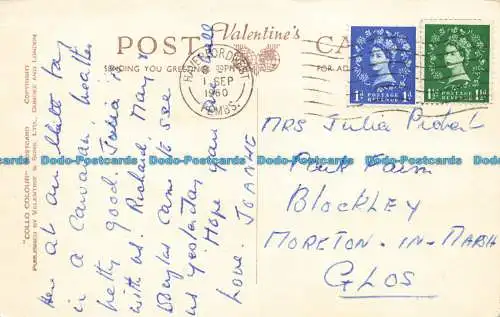 POST CARD
Valentine's
SENDING YOU GREETINGS
FOR AD
HAVERFORDWEST
1 SEP
1960
PEMBS.
1D POSTAGE REVENUE 1D
1½D POSTAGE REVENUE 1½D
"COLLO COLOUR" POSTCARD COPYRIGHT
PUBLISHED BY VALENTINE & SONS, LTD., DUNDEE AND LONDON
Here at an
in a Caravan, weather
pretty good. Julia is
with us. Richard, Mary &
Douglas came to see
us yesterday
Hope you are well
Love. JOANNE
MRS Julia Probert
Park Farm
BLOCKLEY
MORETON-IN-MARSH
GLOS
Dodo-Postcards Dodo-Postcards Dodo-Postcards Dodo-Postcards Dodo-Postcards